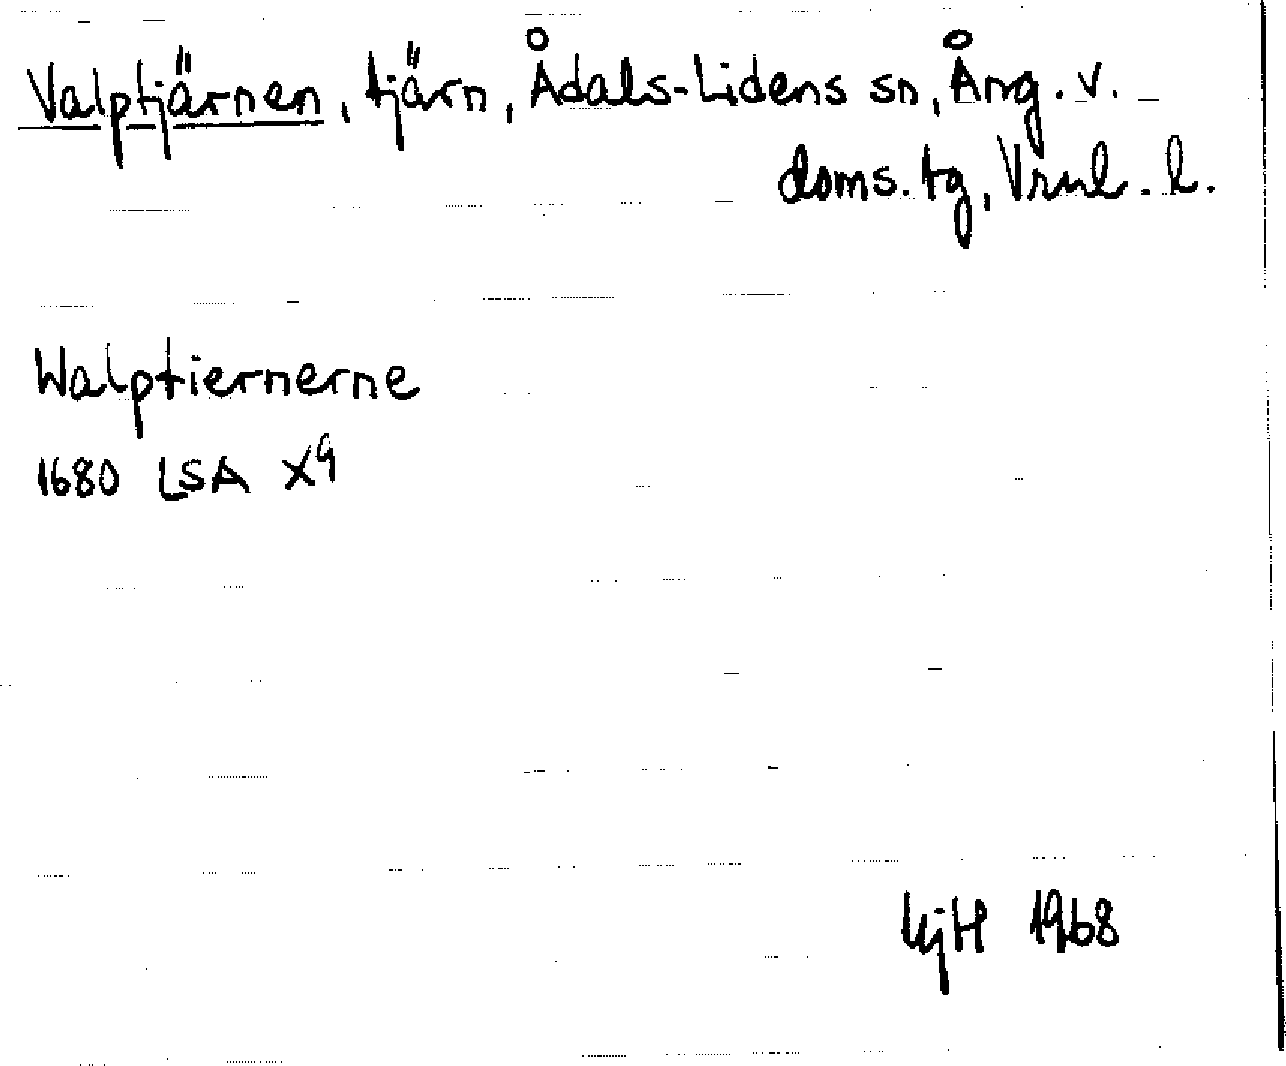 Valptjärnen, tjärn, Ådals-Lidens sn, Ång. v.
doms. tg, Vrnl. l.
Walptiernerne
1680 LSA X9
1968